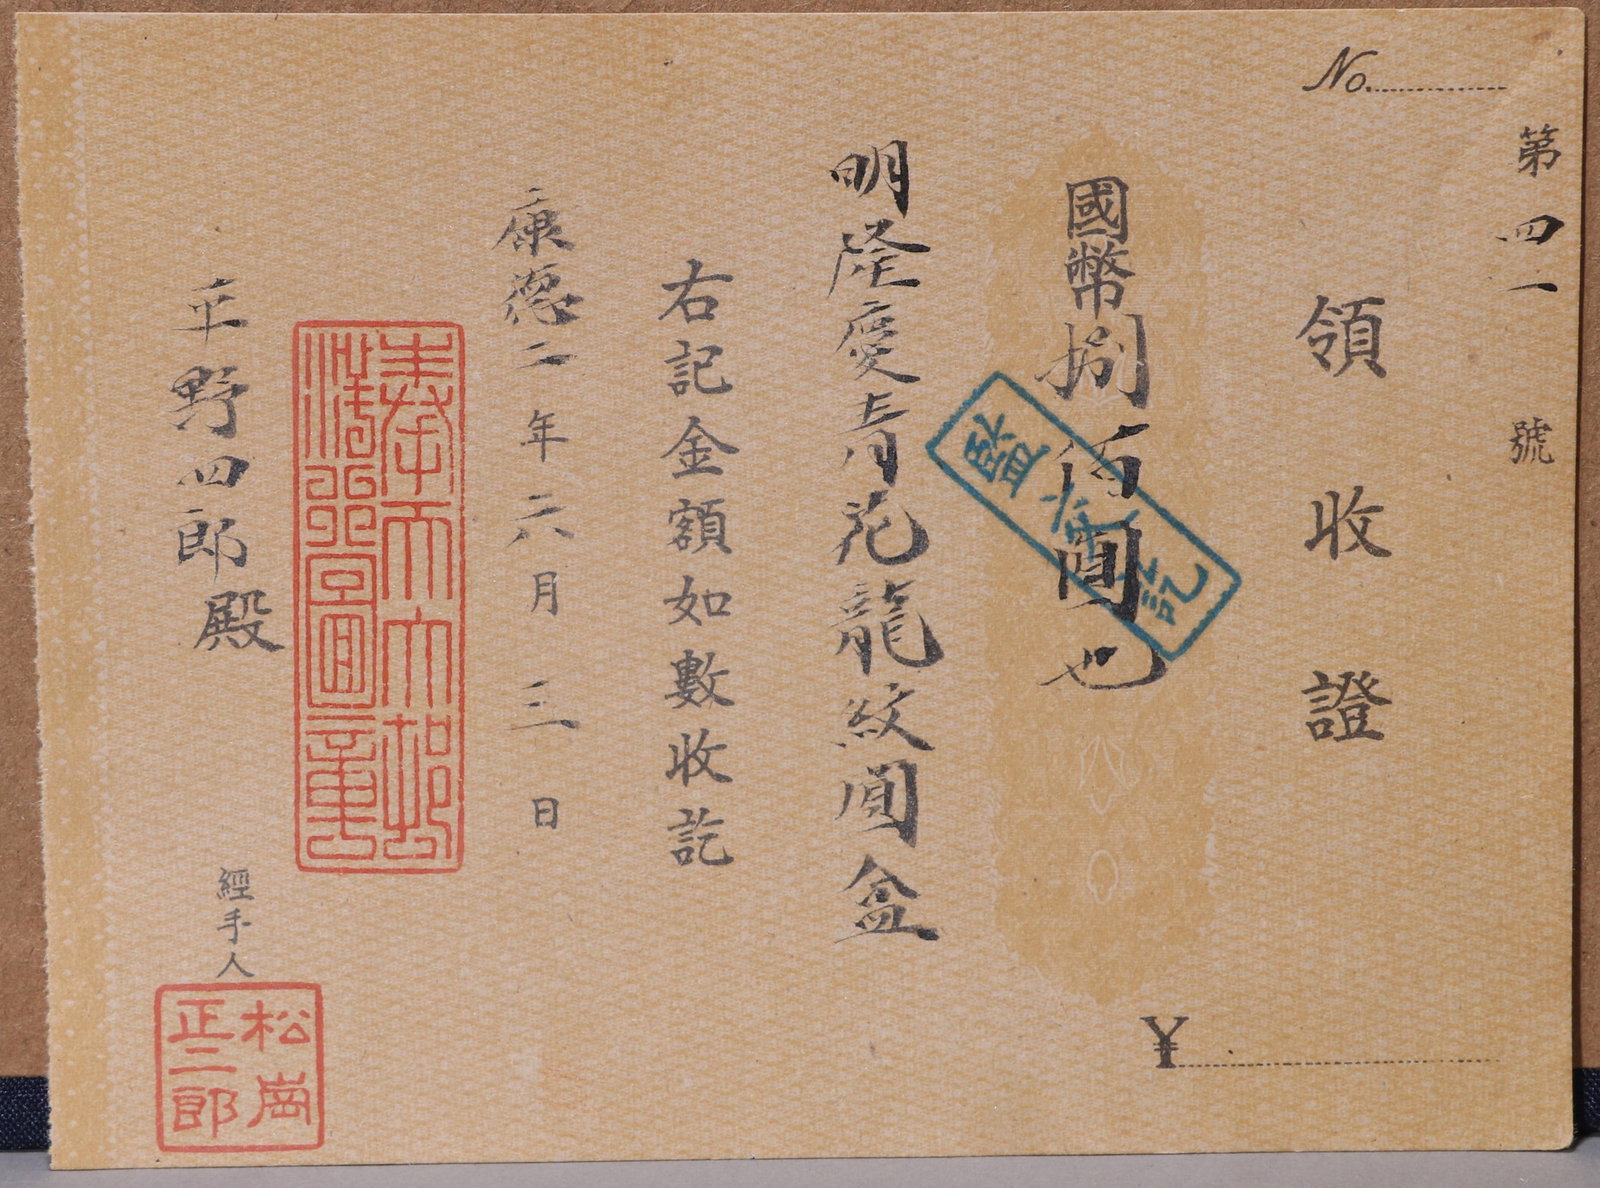 No.
第四一號
領收證
國幣捌佰圓也
明隆慶青花龍紋圓盒
右記金額如數收訖
康德二年六月三日
平野四郎殿
經手人
松崗
正二郎
¥